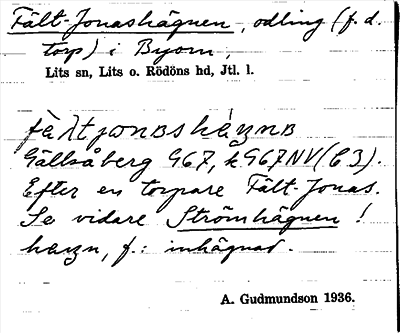 Fält-Jonashägnen, odling (f. d.
torp) i Byom,
Lits sn, Lits o. Rödöns hd, Jtl. l.
Gällsåberg 967, k 967 NV (C 3).
Efter en torpare Fält-Jonas.
Se vidare Strömhägnen!
f.: inhägnad.
A. Gudmundson 1936.